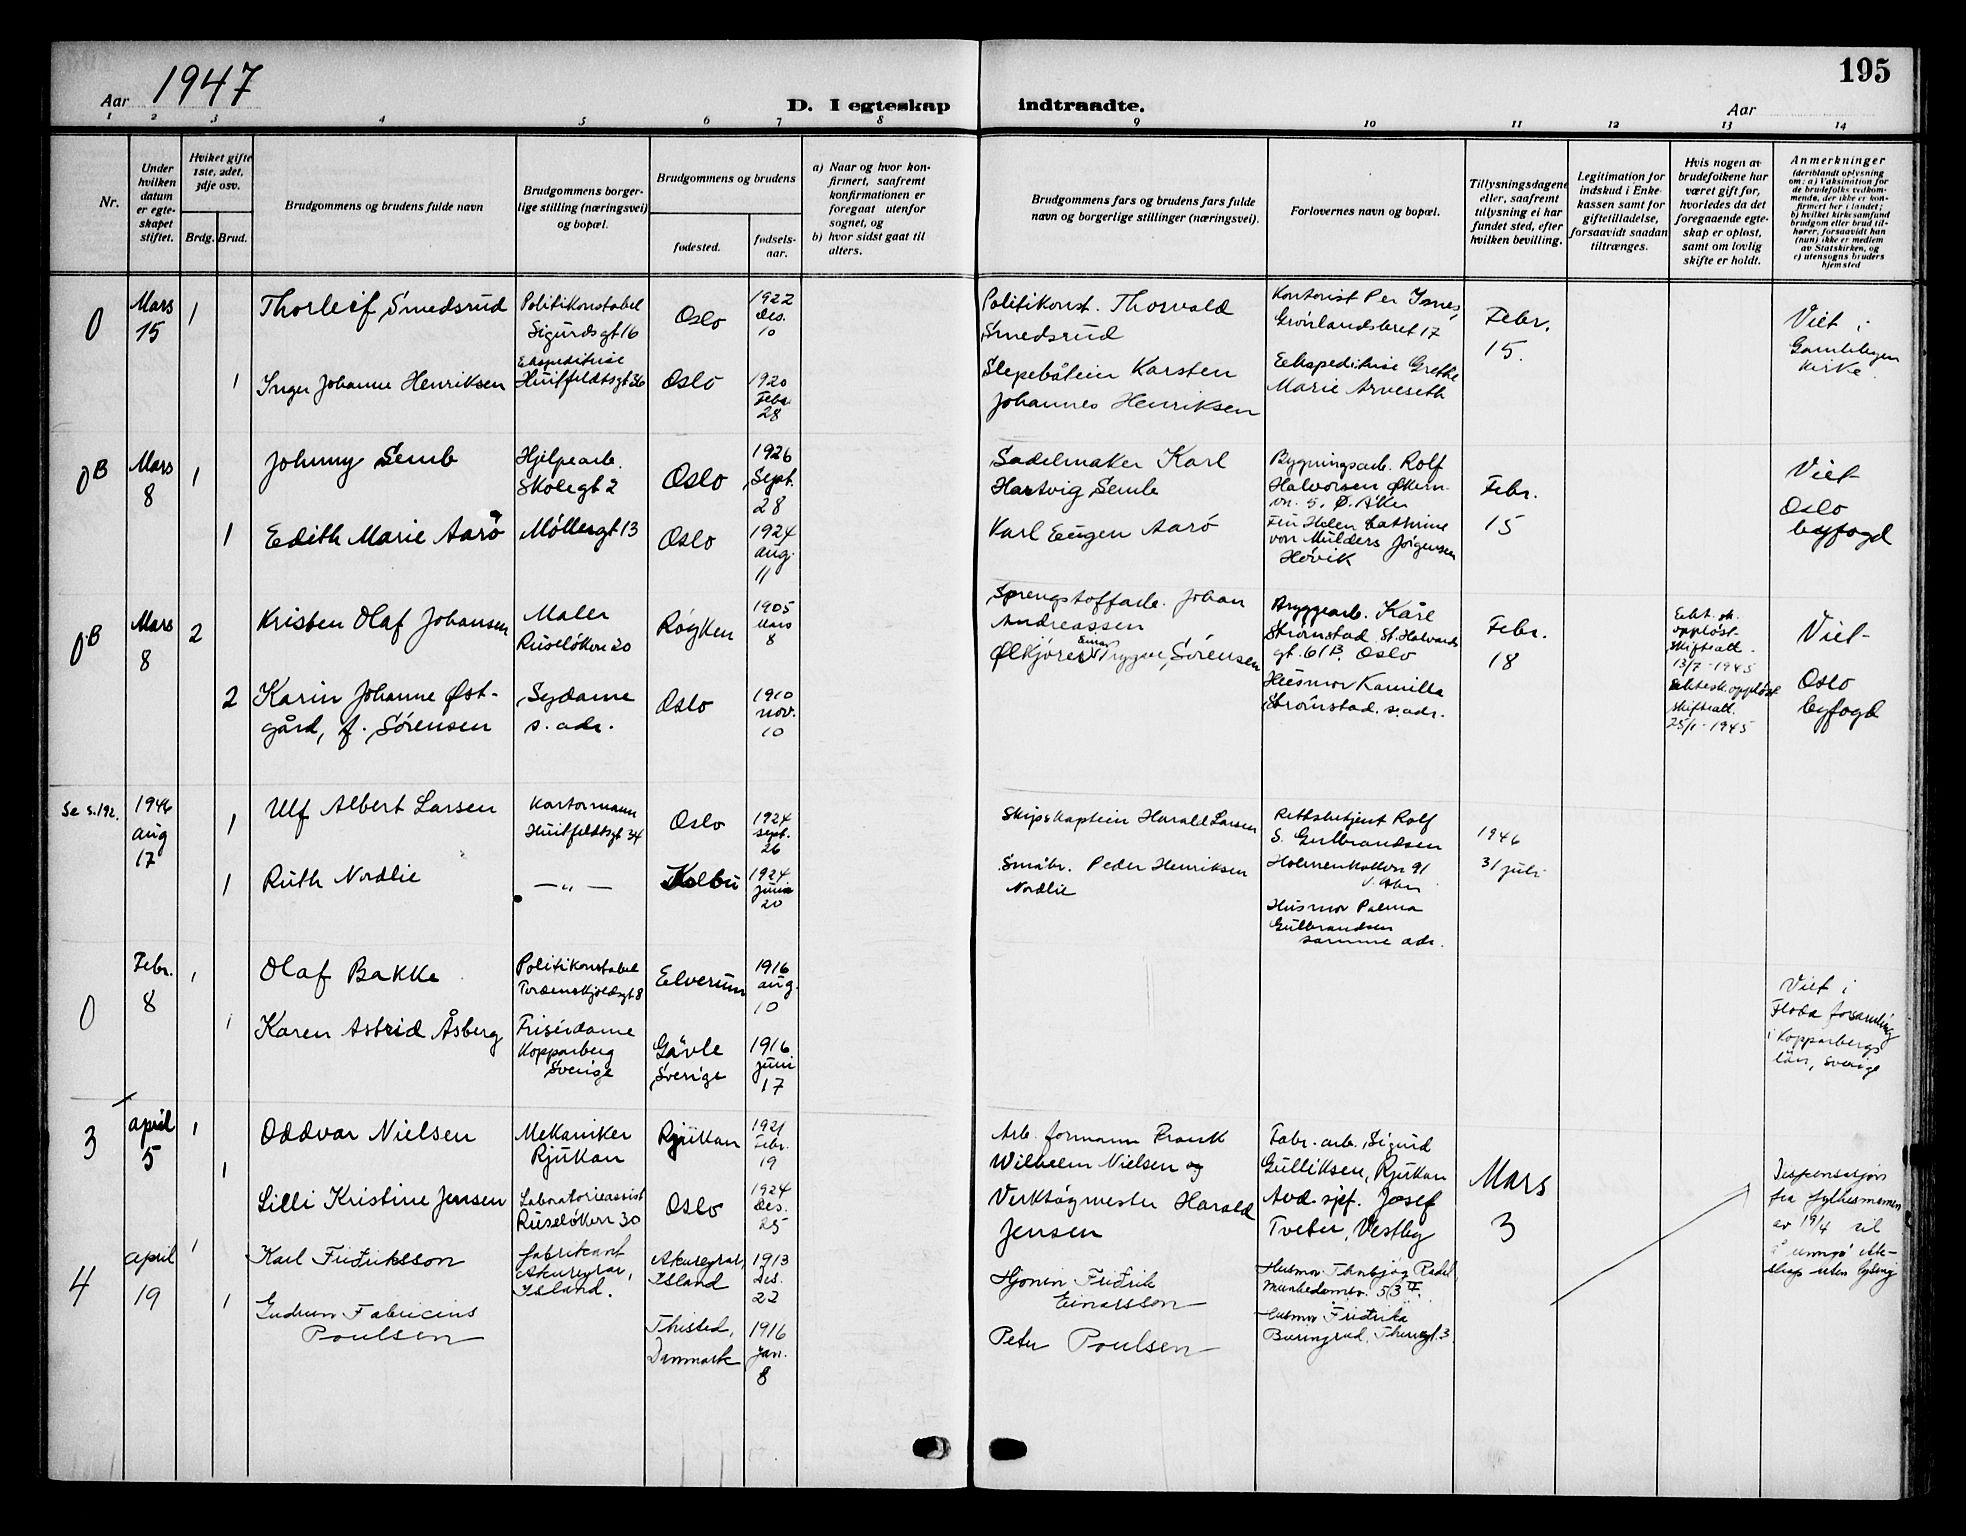 195
Aar 1947
D. I egteskap indtraadte.
Aar
1 2 3 4 5 6 7 8 9 10 11 12 13 14
Nr.
Under hvilken datum er egteskapet stiftet.
Hvilket gifte 1ste, 2det, 3dje osv.
Brdg. Brud.
Brudgommens og brudens fulde navn
Brudgommens borgerlige stilling (næringsvei) og bopæl.
Brudgommens og brudens
fødested.
fødselsaar.
a) Naar og hvor konfirmert, saafremt konfirmationen er foregaat utenfor sognet, og
b) hvor sidst gaat til alters.
Brudgommens fars og brudens fars fulde navn og borgerlige stillinger (næringsvei).
Forlovernes navn og bopæl.
Tillysningsdagene eller, saafremt tillysning ei har fundet sted, efter hvilken bevilling.
Legitimation for indskud i Enkekassen samt for giftetilladelse, forsaavidt saadan tiltrænges.
Hvis nogen av brudefolkene har været gift før, hvorledes da det foregaaende egteskap er opløst, samt om lovlig skifte er holdt.
Anmerkninger (deriblandt oplysning om: a) Vaksination for de brudefolks vedkommende, der ikke er konfirmert her i landet; b) hvilket kirkesamfund brudgom eller brud tilhører, forsaavidt han (hun) ikke er medlem av Statskirken, og c) utensogns bruders hjemsted
0
Mars 15
1
Thorleif Smedsrud
Politikonstabel
Sigurdsgt 16
Oslo
1922 Des. 10
Politikonst. Thorvald
Smedsrud
Kontorist Per Ysnes,
Grønlandsleret 17
Febr. 15.
Viet i
Gamlebyen
Kirke.
1
Inger Johanne Henriksen
Ekspeditrise
Huitfeldtsgt 36
Oslo
1920 Febr. 28
Karsten
Johannes Henriksen
Ekspeditrise Grethe
Marie Arveseth
0B
Mars 8
1
Johnny Semb
Hjelpearb.
Skolegt 2
Oslo
1926 Sept. 28
Sadelmaker Karl
Hartvig Semb
Bygningsarb. Rolf
Halvorsen Økern-
vn. 5, Ø. Aker
Febr. 15
Viet
Oslo
byfogd
1
Edith Marie Aarø
Møllergt 13
Oslo
1924 aug. 11
Karl Eugen Aarø
Fru Helen Cathrine
von Mulders Jørgensen
Høvik
0B
Mars 8
2
Kristen Olaf Johansen
Maler
Ruseløkvn 20
Røyken
1905 Mars 8
Sprengstoffarb. Johan
Andreassen
Bryggearb. Kåre
Strømstad, St. Halvards
gt. 61B. Oslo
Febr. 18
Ekt.sk.
oppløst
skifteatt.
13/7-1945
Viet
Oslo
byfogd
2
Karin Johanne Øst-
gård, f. Sørensen
Sydame
s. adr.
Oslo
1910 nov. 10
Ølkjører Trygve, Sørensen
Husmor Kamilla
Strømstad. s. adr.
Ekktesk. oppløst
skifteatt.
25/1-1945
Se s. 192.
1946 aug 17
1
Ulf Albert Larsen
Kontormann
Huitfeldtsgt 34
Oslo
1924 sept. 26
Skipskaptein Harald Larsen
Rettsbetjent Rolf
S. Gulbrandsen
Holmenkollvn 91
V. Aker
1946
31 juli
1
Ruth Nordlie
— " —
Kolbu
1924 juni 20
Småbr. Peder Henriksen
Nordlie
Husmor Palma
Gulbrandsen
samme adr.
0
Febr. 8
1
Olaf Bakke
Politikonstabel
Tordenskjoldsgt 8
Elverum
1916 aug. 10
Viet i
Floda forsamling
i Kopparbergs
län, Sverige
1
Karen Astrid Åsberg
Frisørdame
Kopparberg
Sverige
Gävle
Sverige
1916 juni 17
3
april 5
1
Oddvar Nielsen
Mekaniker
Rjukan
Rjukan
1921 Febr. 19
Arb. formann Frank
Wilhelm Nielsen og
Fabr. arb. Sigurd
Gulliksen, Rjukan
Mars 3
1
Lilli Kristine Jensen
Laboratorieassist
Ruseløkvn 30
Oslo
1924 Des. 25
Verktøymester Harald
Jensen
Avd. sjef. Josef
Tveter, Vestby
4
april 19
1
Karl Fridriksson
fabrikant
Akureyrar,
Island.
Akureyrar,
Island
1913 Des. 22
Hjonin Fridrik
Einarsson
Husmor Thorbjøg
53 IV.
Dispensasjon
fra fylkesmannen
av 19/4 til
å inngå ekte-
skap uten lysing
1
Gudrun Fabricius
Poulsen
Thisted,
Danmark
1916 Jan. 8
Peter Poulsen
Husmor Fridrika